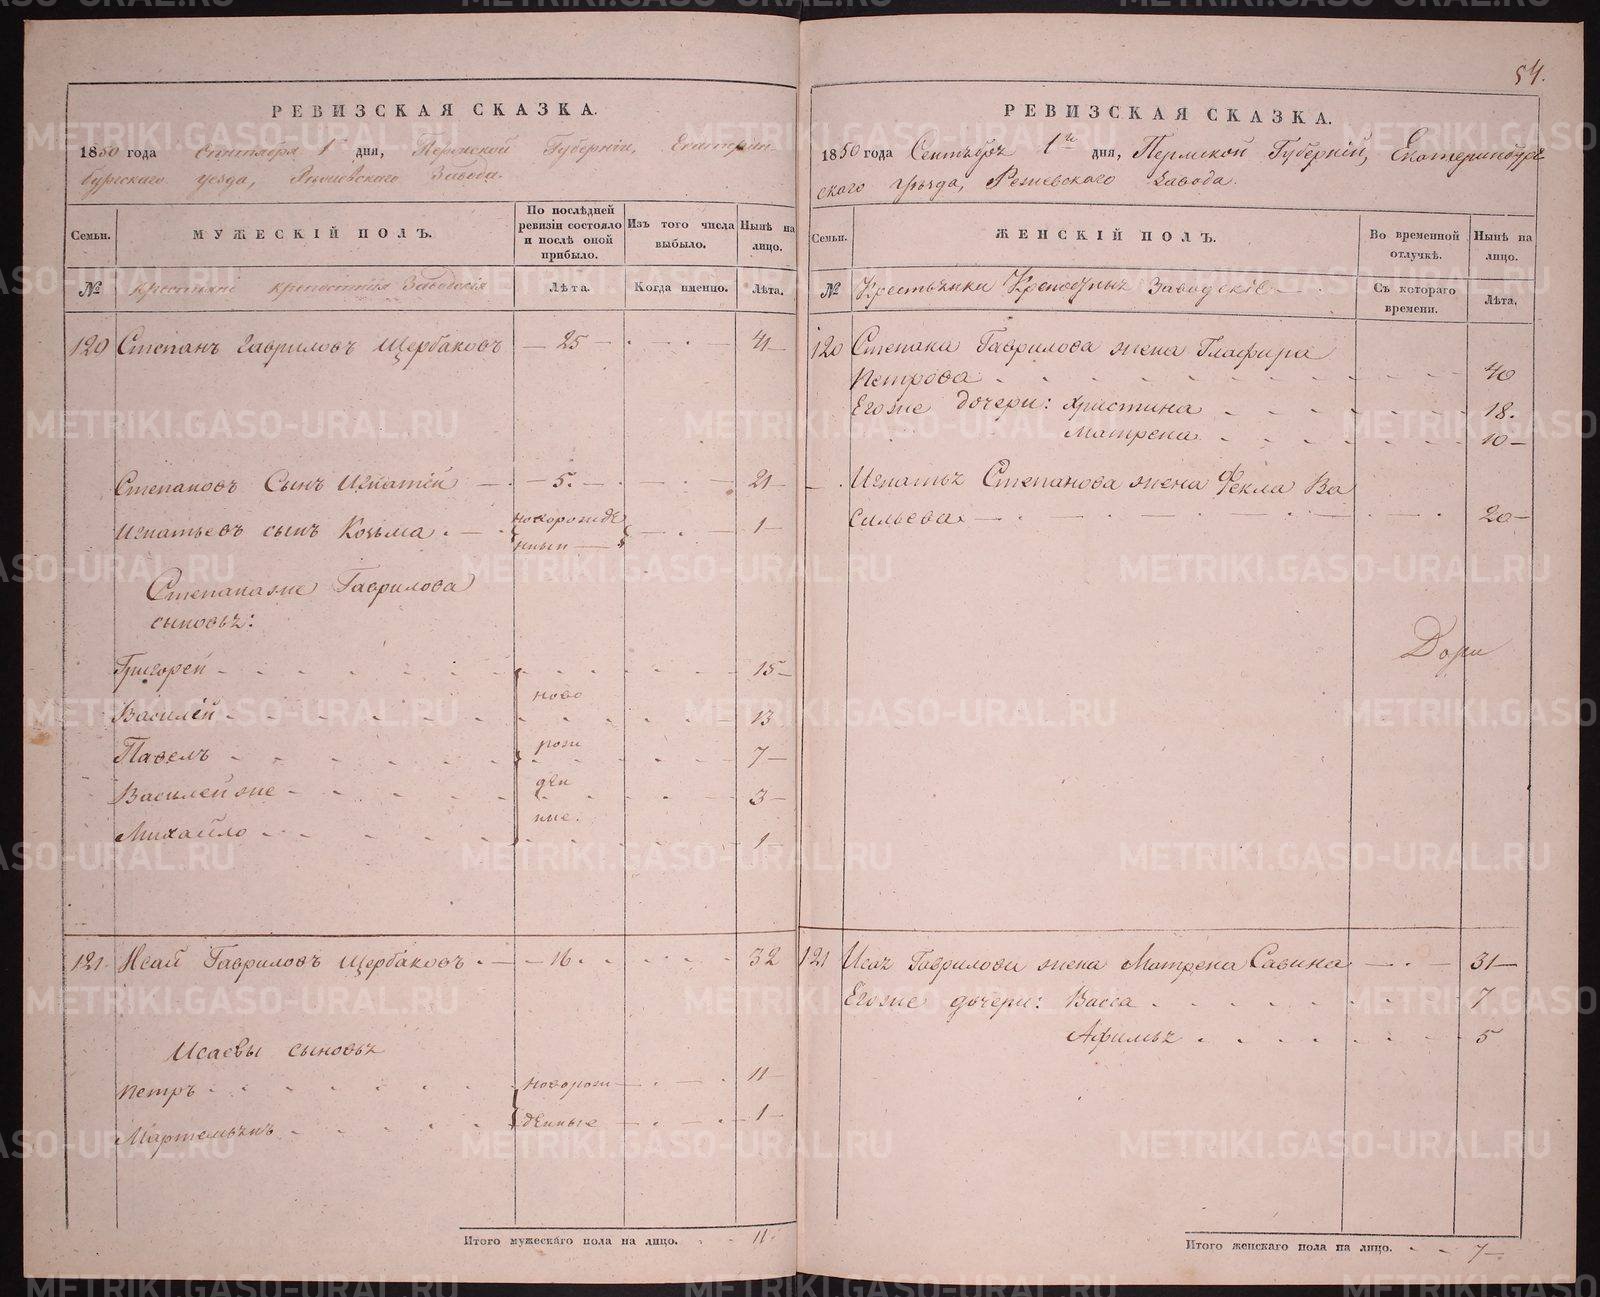 54.
РЕВИЗСКАЯ СКАЗКА.
1850 года Сентября 1 дня, Пермской Губерніи, Екатерин-
бургскаго уезда, Завода.
Семьи.
МУЖЕСКІЙ ПОЛЪ.
По послѣдней ревизіи состояло и послѣ оной прибыло.
Изъ того числа выбыло.
Нынѣ на лицо.
№
крестьяне крепостные Заводскія
Лѣта.
Когда именно.
Лѣта.
120 Степанъ Гавриловъ Щербаковъ — 25 — 41
Степановъ Сынъ Игнатій — 5. — 21
Игнатьевъ сынъ Козьма новорожде 1
нный
Степана же Гаврилова
сыновья:
Григорей 15
ново
Василей 13
рож
Павелъ 7
ден
Василей же 3
ные.
Михайло 1
121 Исай Гавриловъ Щербаковъ — 16. 32
Исаевы сыновья
Петръ новорож 11
Мартемьянъ денные 1
Итого мужескаго пола на лицо. 11.
РЕВИЗСКАЯ СКАЗКА.
1850 года Сентября 1го дня, Пермской Губерній, Екатеринбург
ского уѣзда, Режевского завода.
Семьи.
ЖЕНСКІЙ ПОЛЪ.
Во временной отлучкѣ.
Нынѣ на лицо.
№
Крестьянки Заводскіе
Съ котораго времени.
Лѣта.
120 Степана Гаврилова жена Глафира
Петрова 40
Его же дочери: Христина 18.
Матрена 10
Игнатья Степанова жена Фекла Ва
сильева 20
121 Исая Гаврилова жена Матрена Савина 31
Его же дочери: Васса 7
Афимья 5
Итого женскаго пола на лицо. 7
METRIKI.GASO-URAL.RU